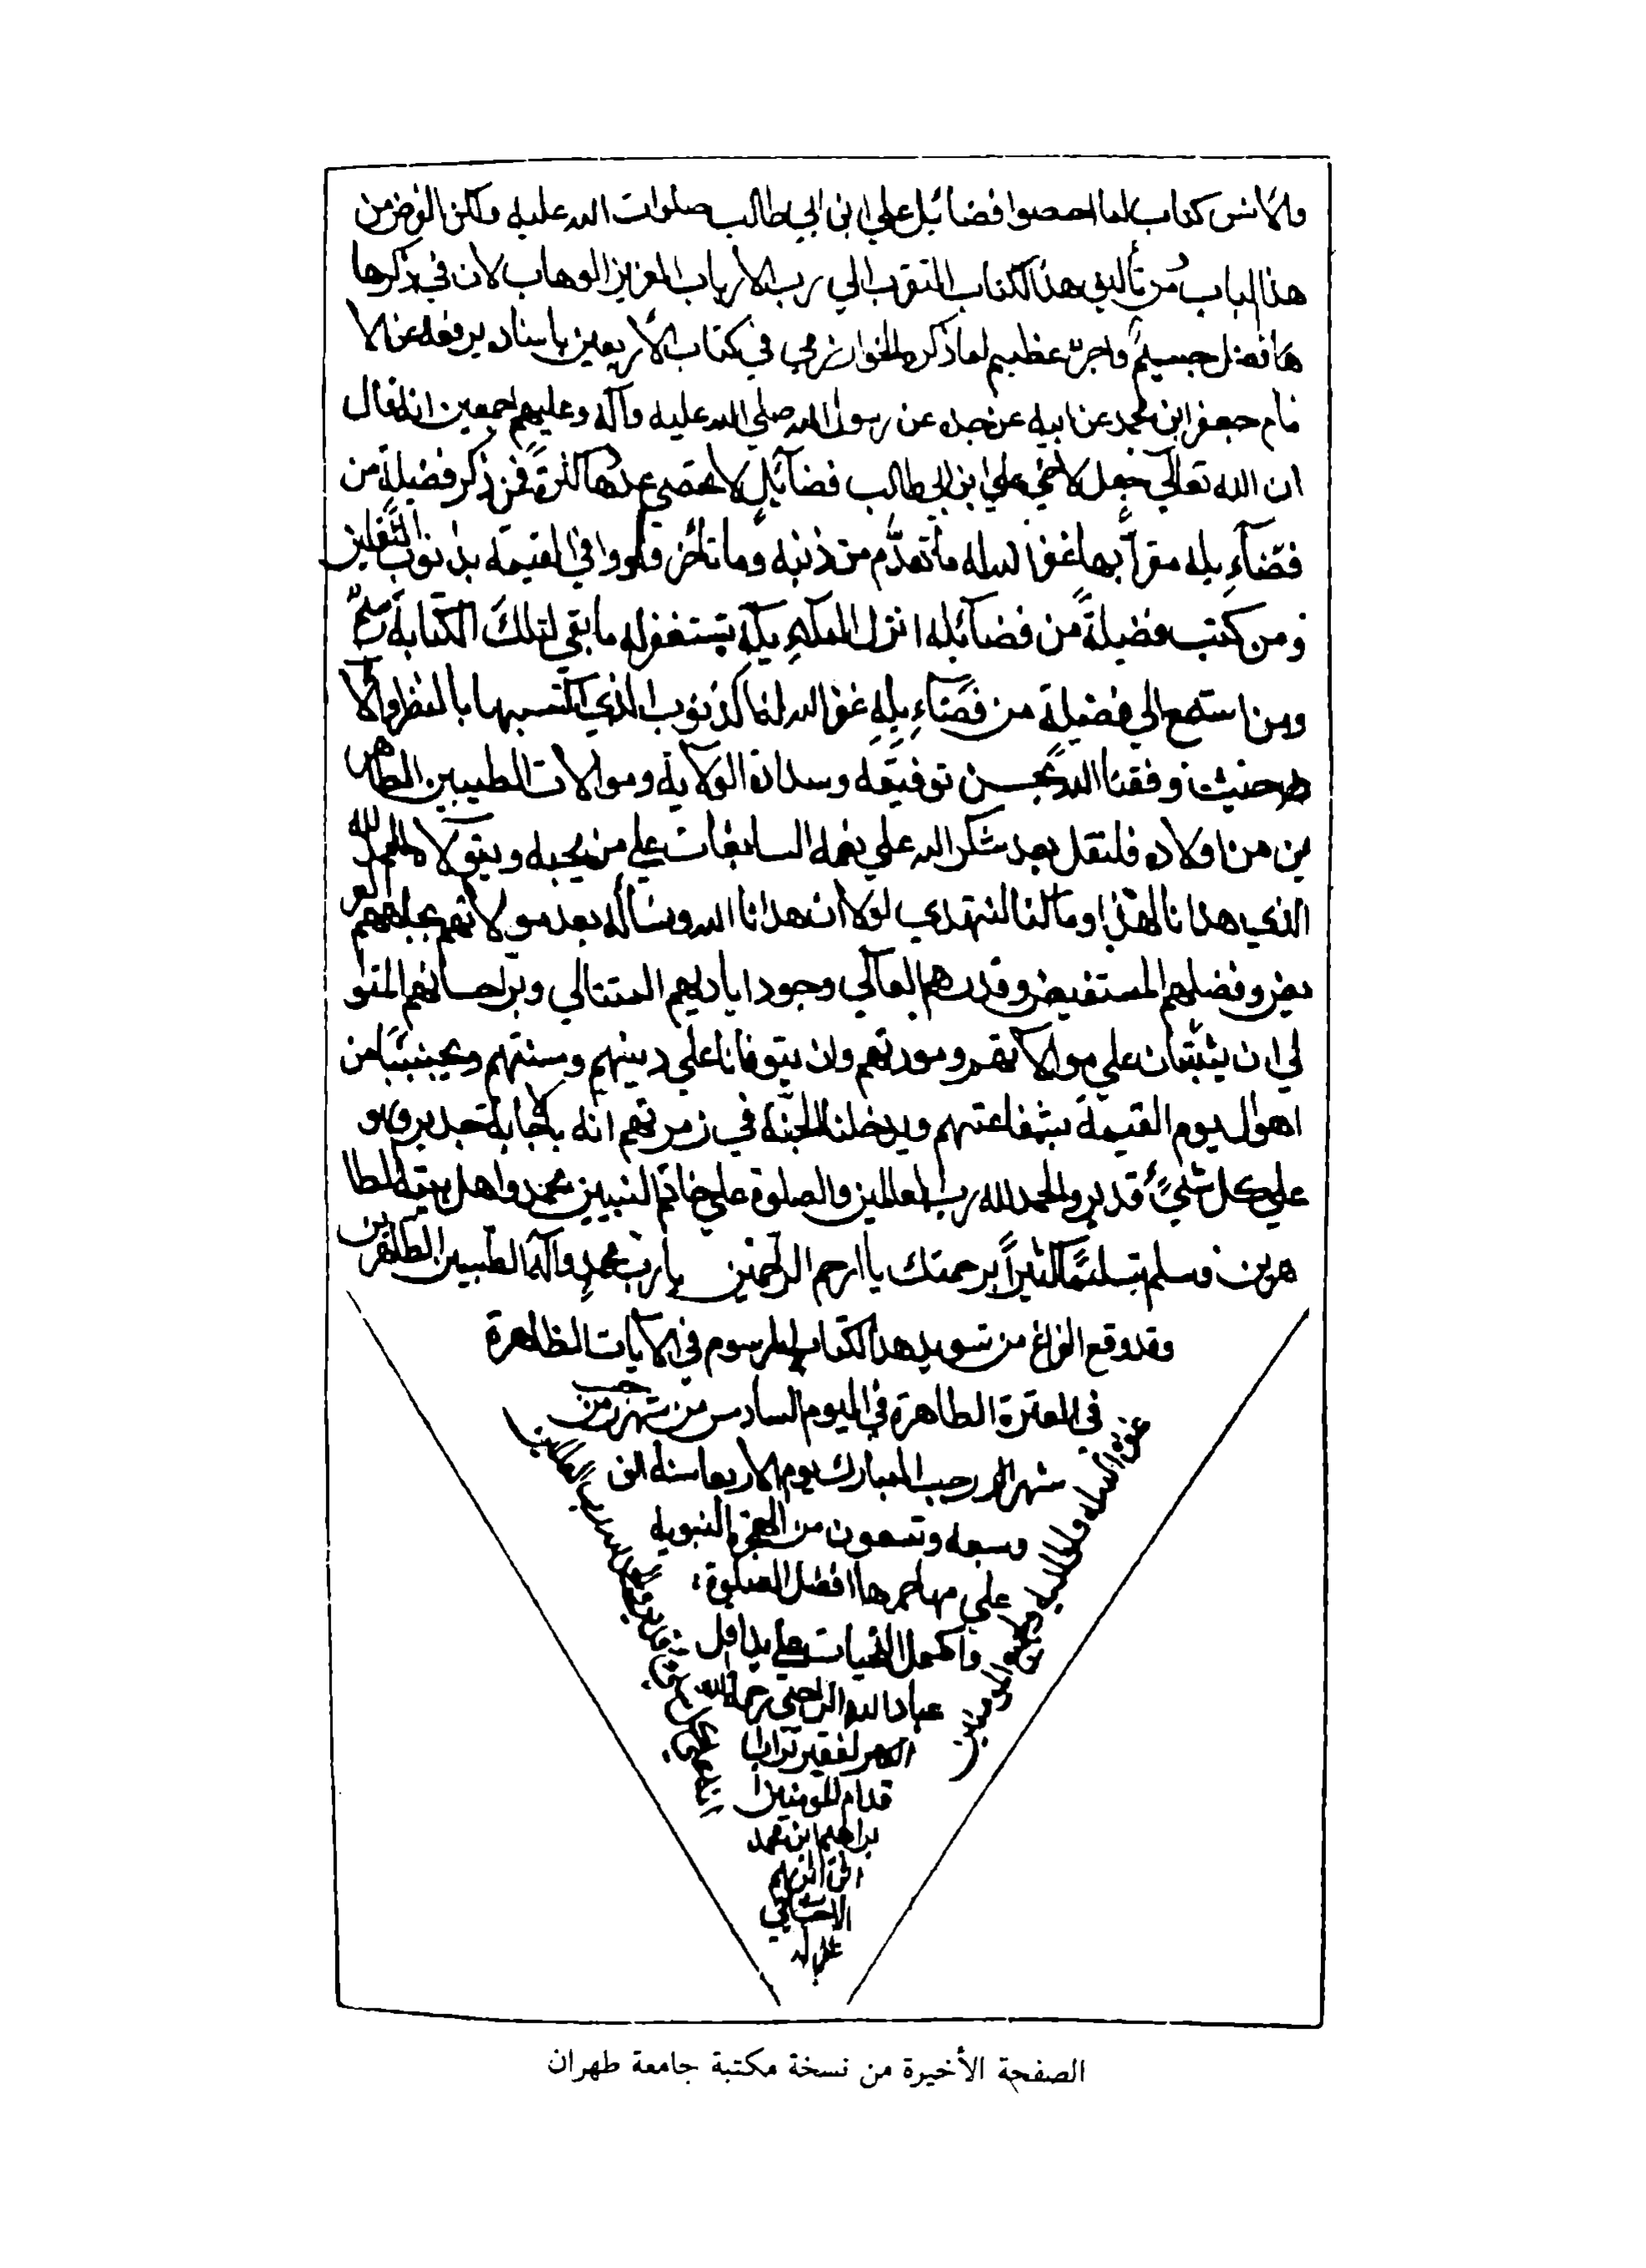 والانس كتاب لما احصوا فضائل علي ابن ابي طالب صلوات الله عليه ولكن الغرض من
هذا الباب من تأليفي هذا الكتاب التقرب الي رب الارباب العزيز الوهاب لان في ذكرها
ها فضل جسيم واجر عظيم لما ذكره الخوارزمي في كتاب الاربعين باسناد يرفعه عن الا
مام جعفر ابن محمد عن ابيه عن جده عن رسول الله صلي الله عليه وآله وعليهم اجمعين انه قال
ان الله تعالي جعل لاخي علي ابن ابي طالب فضآئل لا تحصي عددها كثرةً فمن ذكر فضيلة من
فضآءيله مقراً بها غفر الله له ما تقدّم من ذنبه وما تأخر ولو وافي القيمة بذنوب الثّقلين
ومن كتب فضيلةً من فضآئله انزل الملآءيكة يستغفر له ما بقي لتلك الكتابة
ومن استمع الي فضيلة من فضآءيله غفر الله له الذنوب الذي اكتسبها بالنظر والا
وفقنا الله بحسن توفيقه الولاية وموالات الطيبين الطاهر
ين من اولاده فلنقل بعد شكر الله علي نعمه السابغات علي من يحبه ويتولاه الحمد لله
الذي هدانا لهذا وما كنا لنهتدي لولا ان هدانا الله ونسأله بعد
يض وفضلهم المستفيض وقدرهم العآلي وجود اياديهم المتتالي وبر احسانهم المتوا
لي ان يثبتنا علي موالاتهم ومودتهم وان يتوفانا علي دينهم وسنتهم من
اهوال يوم القيمة بشفاعتهم ويدخلنا الجنة في زمرتهم انه بالاجابة جدير وهو
علي كل شيءٍ قدير والحمد لله رب العالمين والصلوة علي خاتم النبيين محمد واهل بيته الطا
هرين وسلم تسليماً كثيراً برحمتك يا ارحم الراحمين يا رب محمدٍ وآله الطيبين الطاهرين
وقد وقع الفراغ من تسويد هذا الكتاب المرسوم في الآيات الظاهرة
في العترة الطاهرة في اليوم السادس من شهر رجب من
شهر الله رجب المبارك يوم الاربعا سنة الف
وسبعة وتسعون من الهجرة النبوية
علي مهاجرها افضل الصلوة
واكمل التحيات علي يد اقل
عباد الله الراجي رحمة الله
الفقير تراب ا
قدام المؤمنين ا
براهيم ابن محمد
الاحسائي
غفر له
الصفحة الأخيرة من نسخة مكتبة جامعة طهران